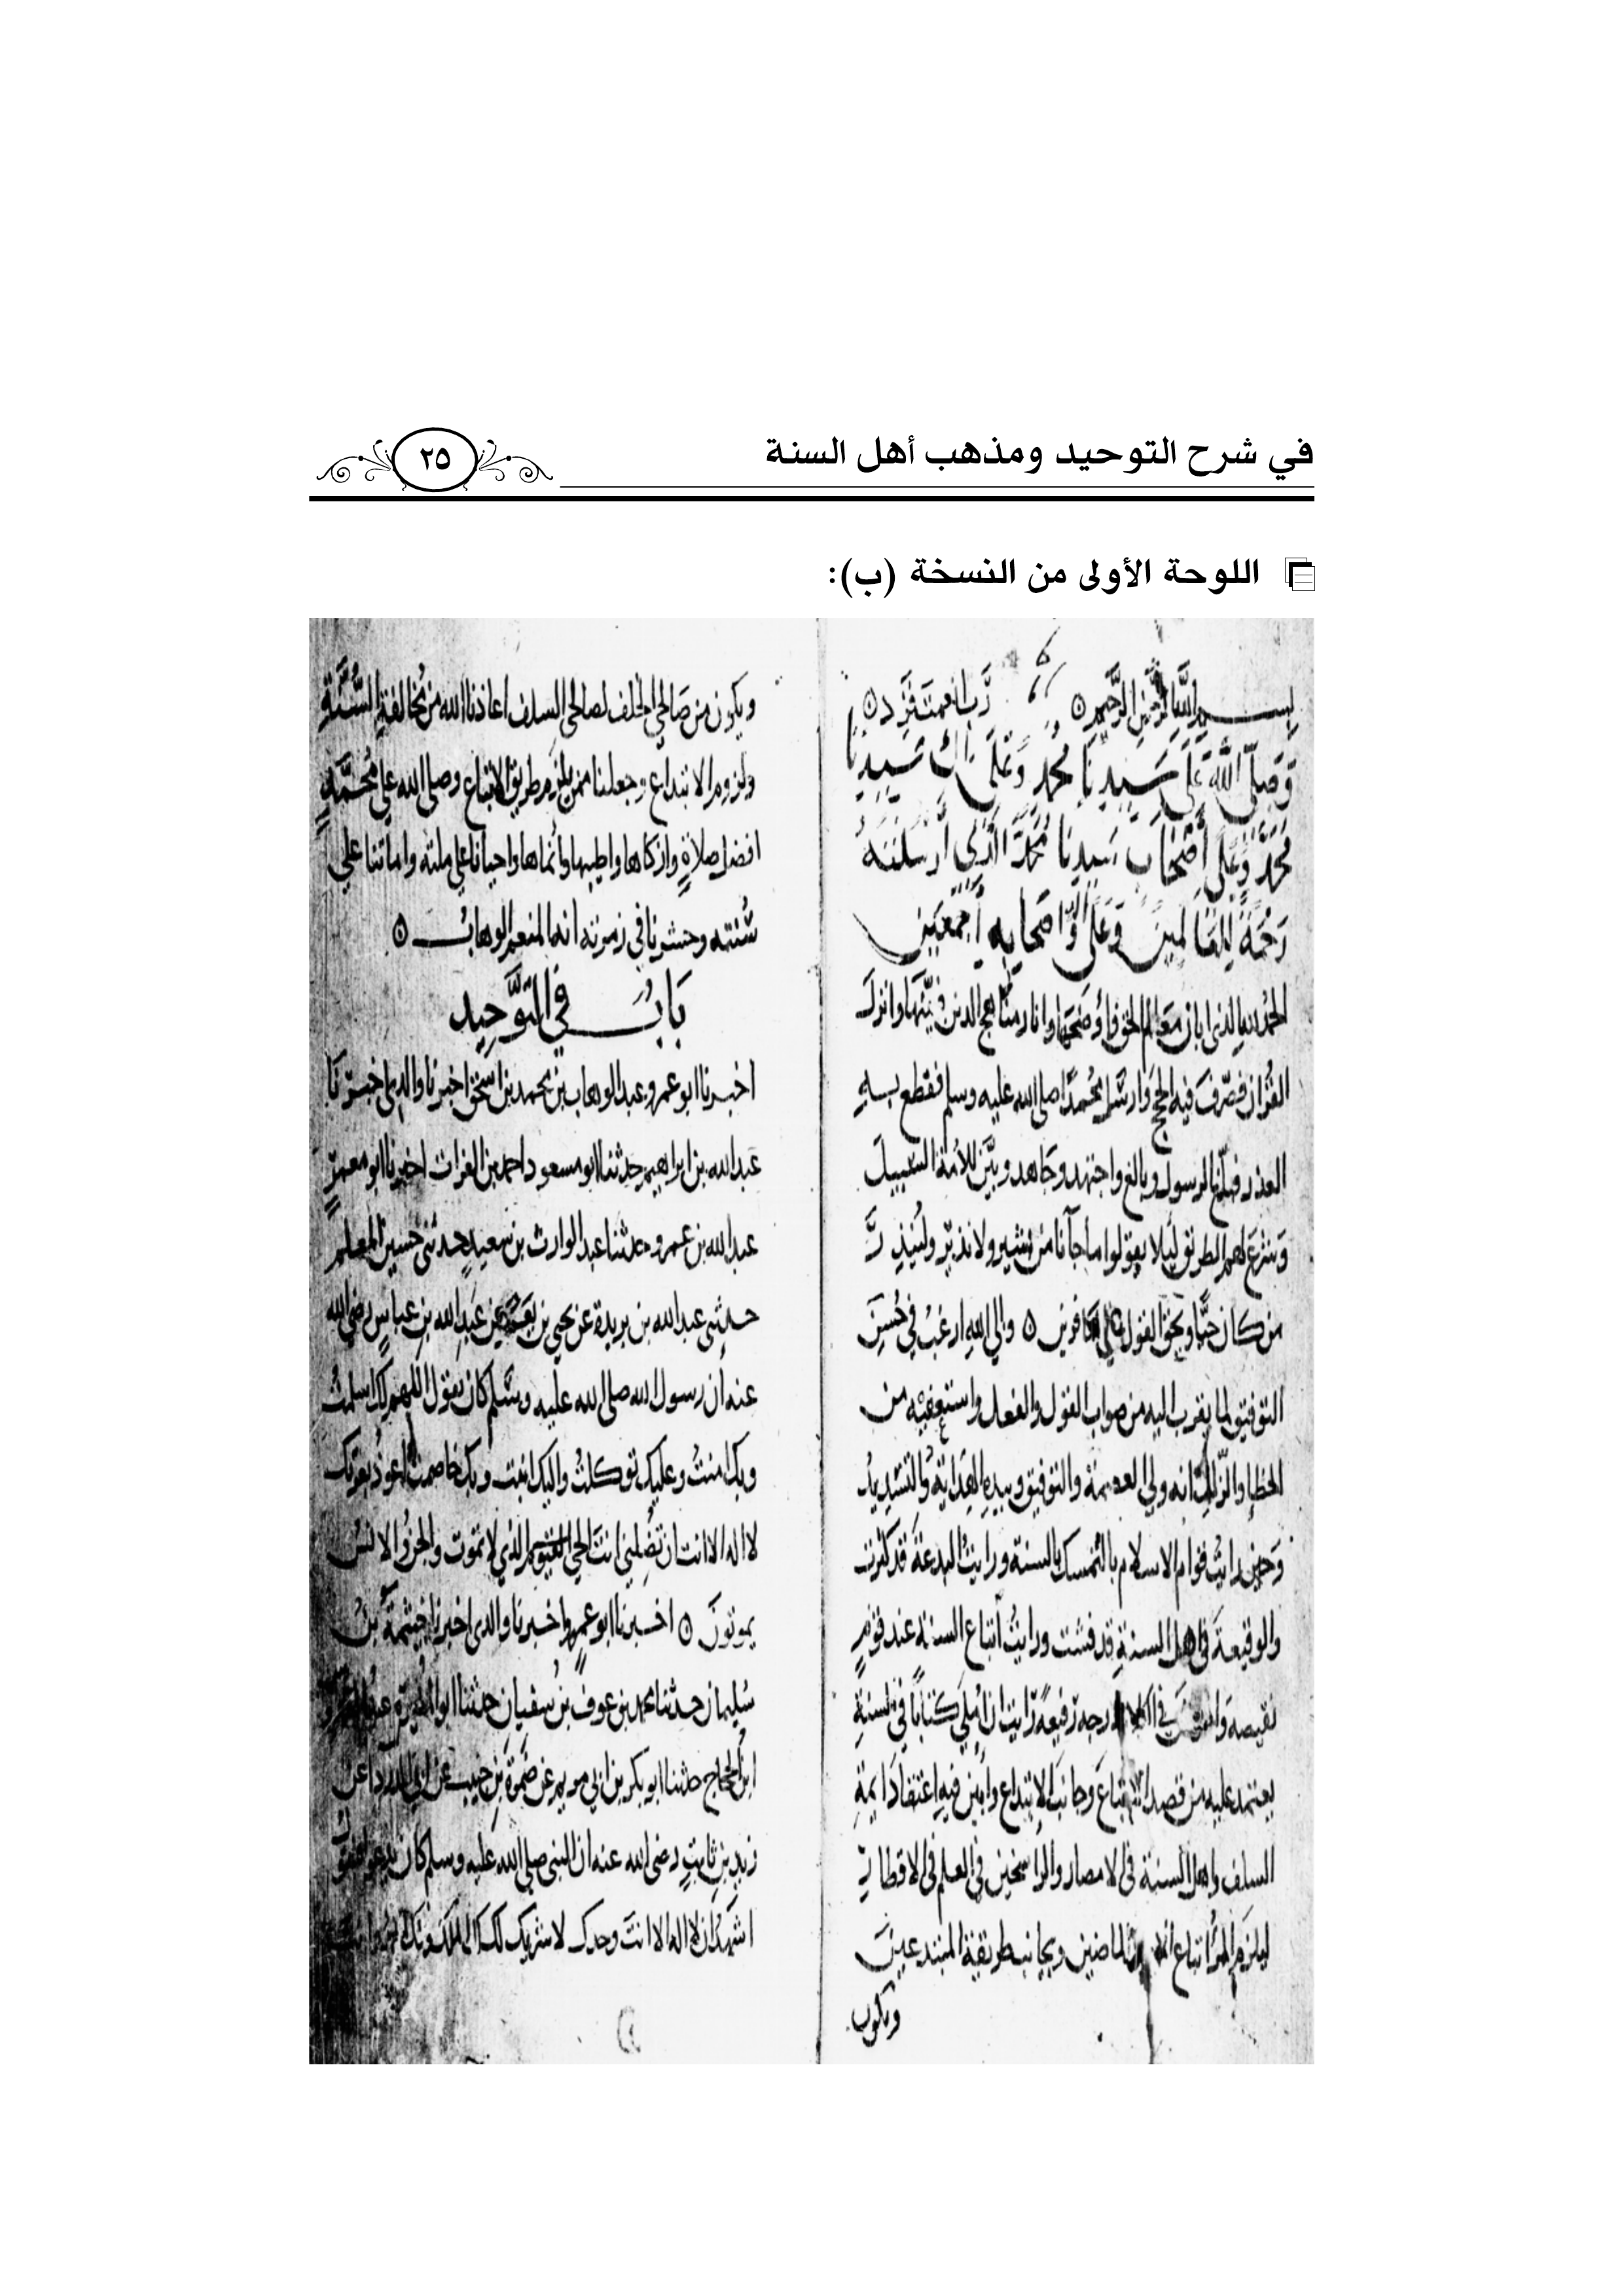 في شرح التوحيد ومذهب أهل السنة
٢٥
اللوحة الأولى من النسخة (ب):
بسم الله الرحمن الرحيم ٥ رَبِّ انعمت فزد ٥
وَصَلَّى اللَّهُ عَلَى سَيِّدِنَا مُحَمَّدٍ وَعَلَى آل سَيِّدِنَا
مُحَمَّدٍ وَعَلَى أَصْحَابِ سَيِّدِنَا مُحَمَّدٍ الَّذِي أَرْسَلْتَهُ
رَحْمَةً لِلْعَالَمِينَ وَعَلَى واصحابه أجمعين
الحمد لله الذي ابان معالم الحق فأوضحها وانار مناهج الدين فبيّنها وانزل
القُرآن فصرّف فيه الحجج وارسل محمدًا صلى الله عليه وسلم فقطع به
العذر فبلّغ الرسول وبالغ واجتهد وجاهد وبيَّن للأمة السبيل
وشرع لهم الطريق ليلا يقولوا ما جآنا من بشير ولا نذير وليُنذِرَ
من كان حيًّا ويحق القول على الكافرين ٥ والى الله ارغب في حُسن
التوفيق لما يقرب اليه من صواب القول والفعل واستعفيه من
الخطا والزلل انه ولي العصمة والتوفيق وبيده الهداية والتسديد
وحين رايتُ قوام الاسلام بالتمسك بالسنة ورايتُ البدعة قد كثرت
والوقيعة في اهل السنة قد فشت ورايتُ أتباع السنة عند قوم
نقيصة في الكلام درجة رفيعة رايت ان أملي كتابًا في السنة
يعتمد عليه من قصد الاتباع وجانب الابتداع وأبين فيه اعتقاد ايمة
السلف واهل السنة في الامصار والراسخين في العلم في الاقطار
ليلزم المرُ اتباع الماضين ويجانب طريقة المبتدعين
ويكون
ويكون من صَالحي الخلف لصالحي السلف اعاذنا الله من مُخالفة السُّنَّةِ
ولزوم الابتداع وجعلنا ممن يلزم طريق الاتباع وصلى الله على محمَّدٍ
افضل صلاةٍ وازكاها واطيبها وانماها واحيانا على ملته واماتنا على
سُنته وحشرنا في زمرته انه المنعم الوهاب ٥
بَابُ في التَّوحِيد
اخبرنا ابو عمرو عبد الوهاب بن محمد بن اسحق اخبرنا والدي اخبرنا
عبد الله بن ابراهيم حدثنا ابو مسعود احمد بن الفرات اخبرنا ابو معمرٍ
عبد الله بن عمرو حدثنا عبد الوارث بن سعيدٍ حدثني حسين المعلم
حدثني عبد الله بن بريدة عن يحيى بن عن عبد الله بن عباسٍ رضي الله
عنه أن رسول الله صلى الله عليه وسلم كان يقول اللهم لك اسلمتُ
وبك امنتُ وعليك توكلتُ واليك انبت وبك خاصمت اعوذ بعزتك
لا اله الا انت ان تضلني انت الحي القيوم الذي لا تموت والجن والانس
يموتون ٥ اخبرنا ابو عمرو اخبرنا والدي اخبرنا خيثمة بنُ
سُليمان حدثنا محمد بن عوف بن سفيان حدثنا ابو المغيرة
ابن الحجاج حدثنا ابو بكر بن ابي مريم عن ضمرة بن حبيب عن ابي الدرداء عن
زيد بن ثابتٍ رضي الله عنه ان النبي صلى الله عليه وسلم كان يدعو
اشهد ان لا اله الا انت وحدك لا شريك لك